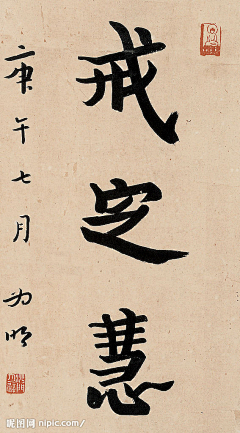 戒定慧
庚午七月
为明
昵图网 nipic.com/